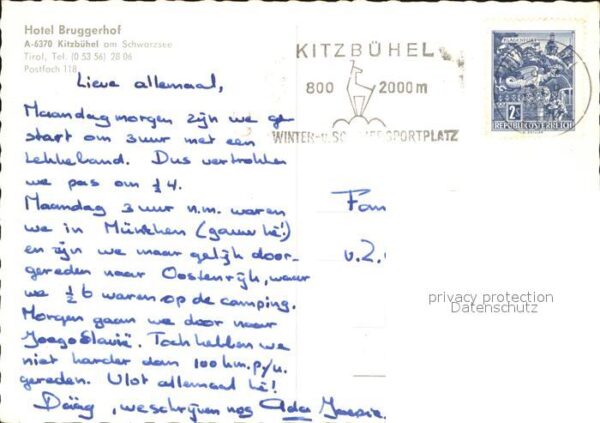 Hotel Bruggerhof
A-6370 Kitzbühel am Schwarzsee
Tirol, Tel. (0 53 56) 28 06
Postfach 118
KITZBÜHEL
800 2000 m
WINTER-U. SOMMERSPORTPLATZ
KLAGENFURT
2S
REPUBLIK ÖSTERREICH
Lieve allemaal,
Maandagmorgen zijn we ge-
start om 3 uur met een
lekkeband. Dus vertrokken
we pas om ½ 4.
Maandag 3 uur n.m. waren
we in München (gauw hè!)
en zijn we maar gelijk door-
gereden naar Oostenrijk, waar
we ½ 6 waren op de camping.
Morgen gaan we door naar
Joego Slavië. Toch hebben we
niet harder dan 100 km. p/u.
gereden. Vlot allemaal hè!
Dááág, we schrijven nog Ada
Fam
v. Z.
privacy protection
Datenschutz